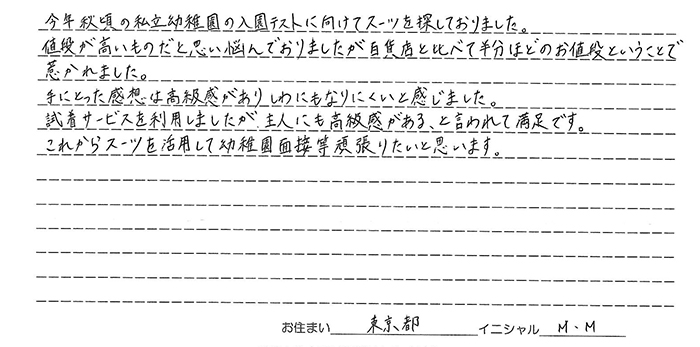 今年秋頃の私立幼稚園の入園テストに向けてスーツを探しておりました。
値段が高いものだと思い悩んでおりましたが百貨店と比べて半分ほどのお値段ということで
惹かれました。
手にとった感想は高級感がありしわにもなりにくいと感じました。
試着サービスを利用しましたが、主人にも高級感がある、と言われて満足です。
これからスーツを活用して幼稚園面接等頑張りたいと思います。
お住まい 東京都 イニシャル M.M